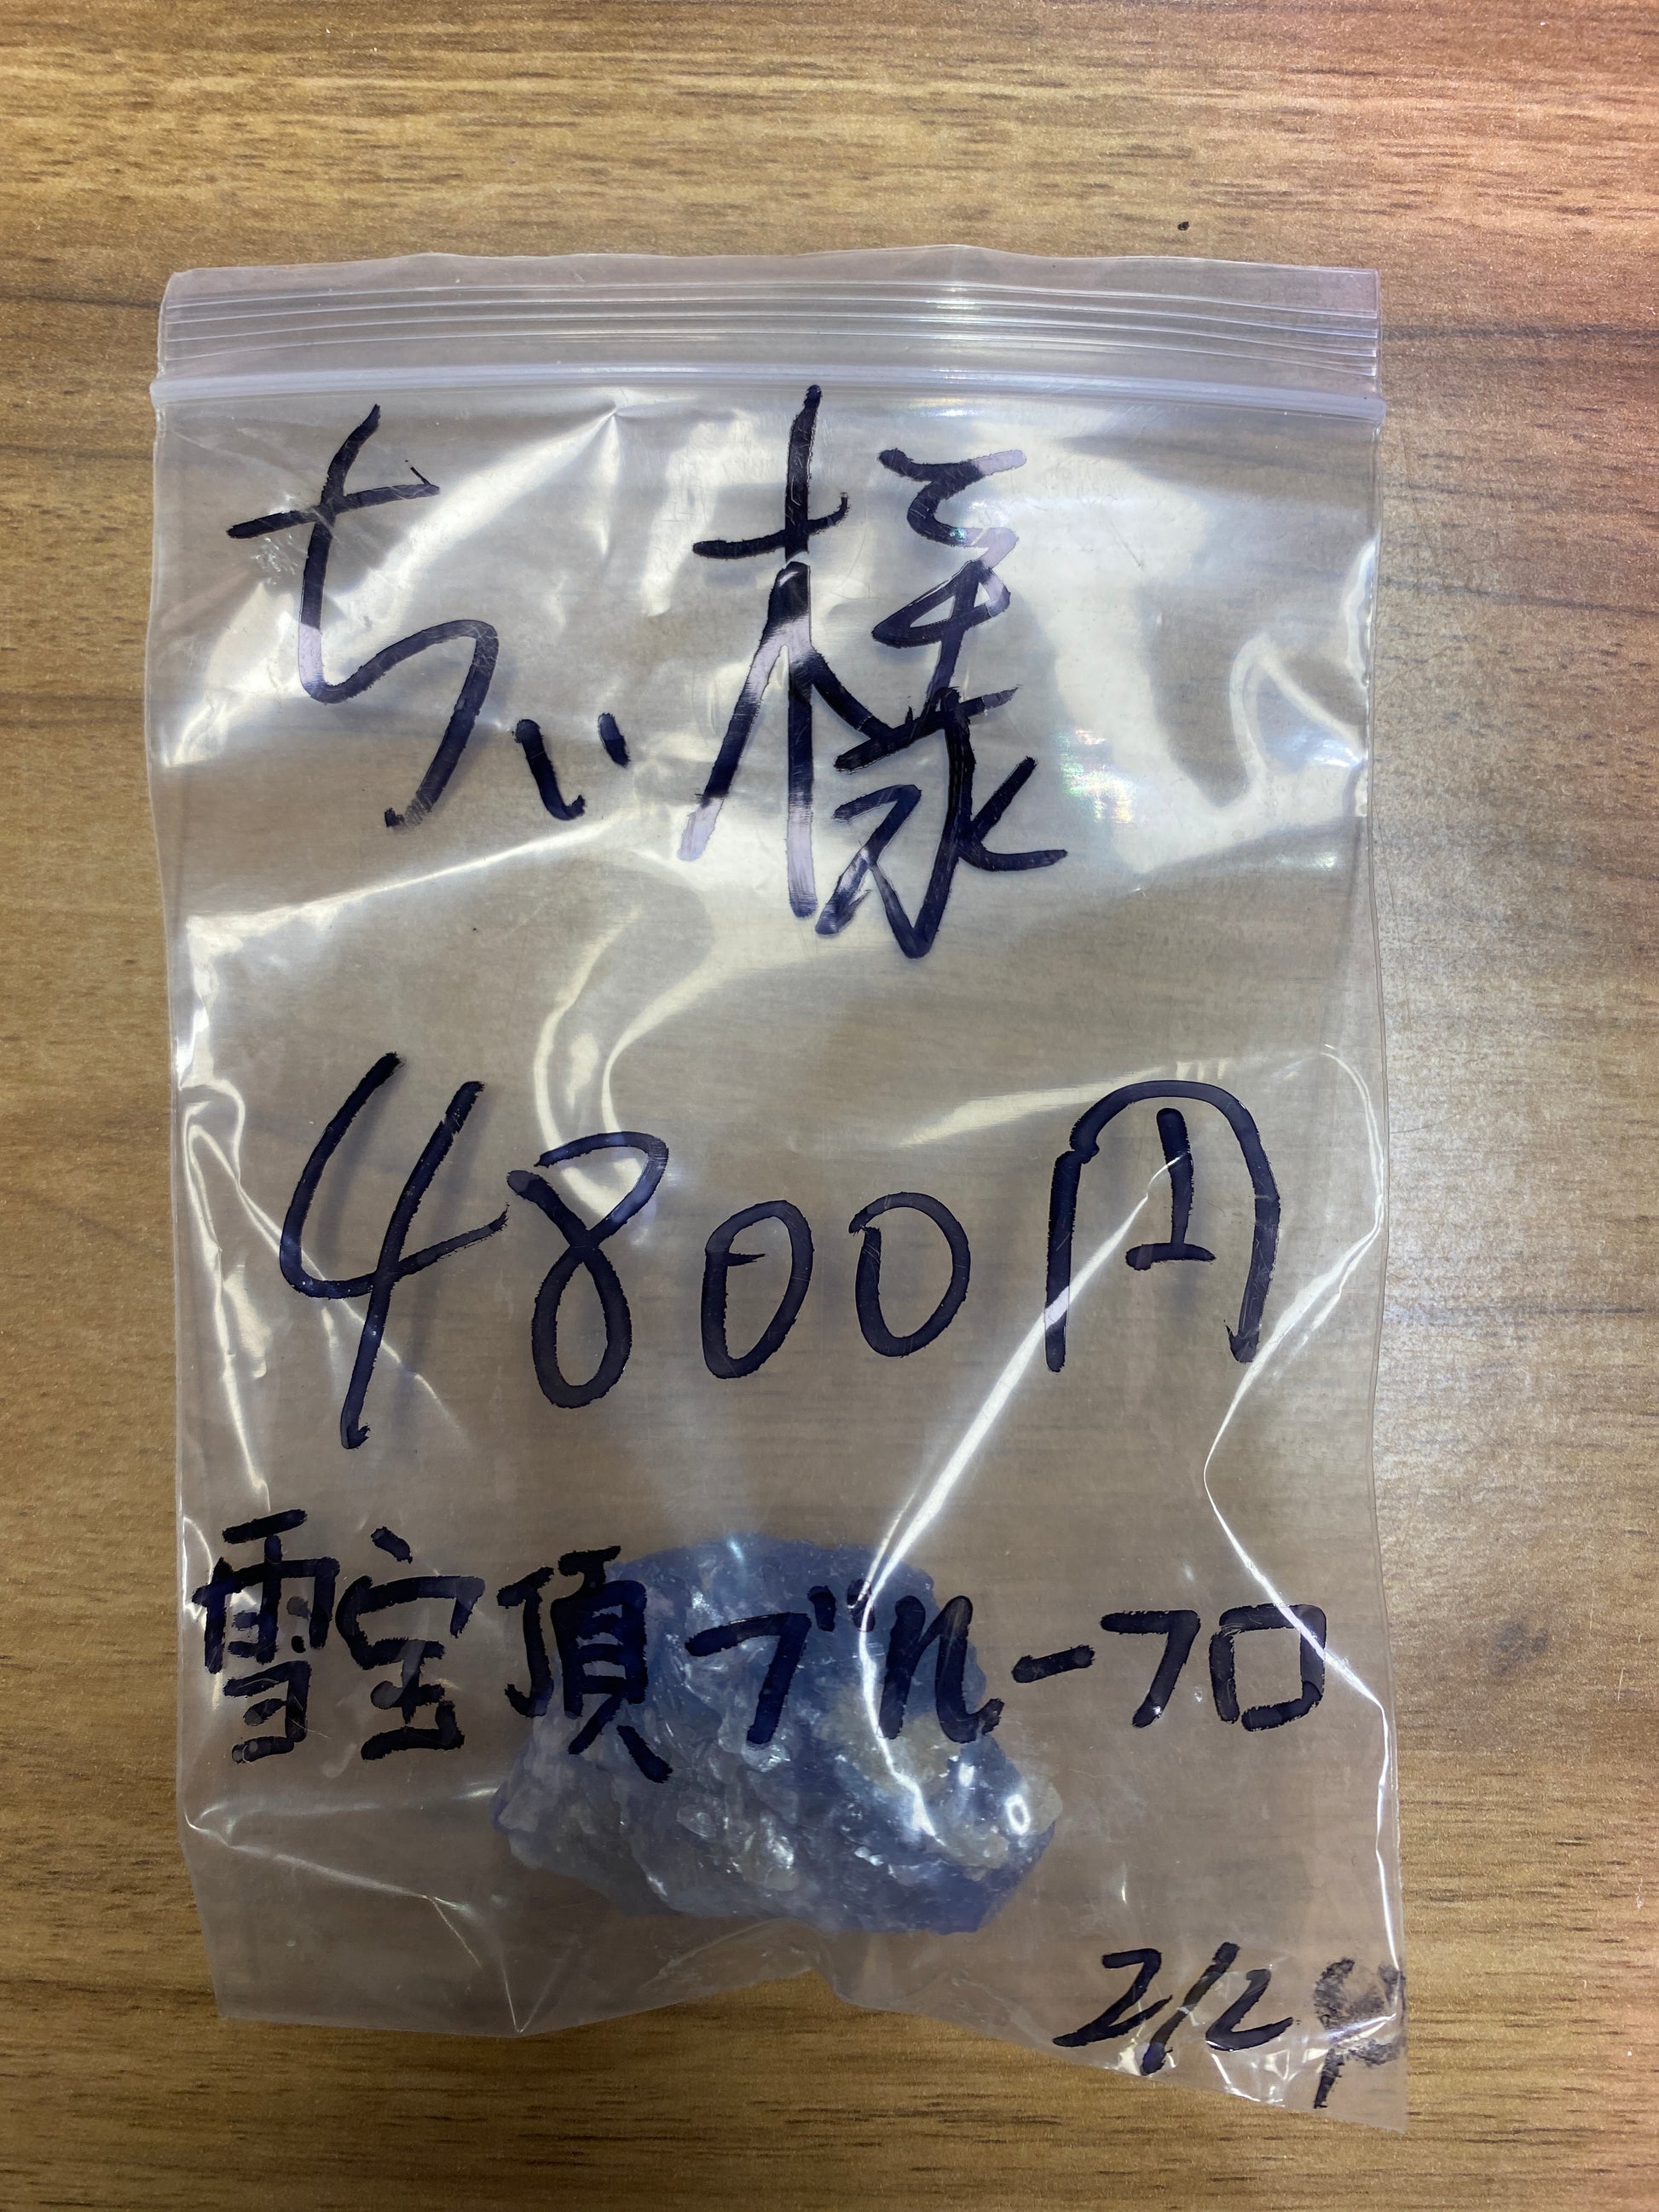 ちぃ様
4800円
雪宝頂ブルーフロ
2/2